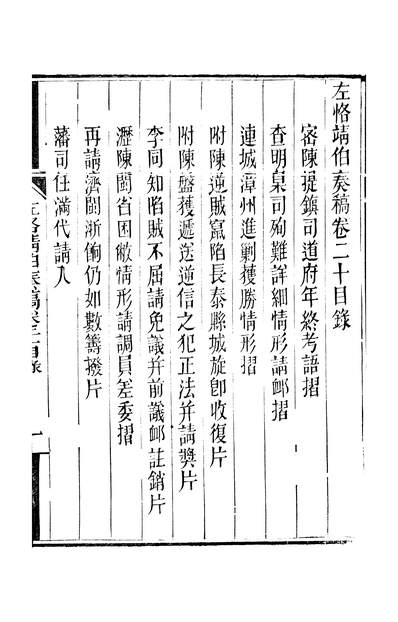 左恪靖伯奏稿卷二十目錄
密陳提鎮司道府年終考語摺
查明臬司殉難詳細情形請卹摺
連城漳州進剿獲勝情形摺
附陳逆賊竄陷長泰縣城旋卽收復片
附陳盤獲遞送逆信之犯正法并請獎片
李同知陷賊不屈請免議并前議卹註銷片
瀝陳閩省困敝情形請調員差委摺
再請濟閩浙餉仍如數籌撥片
藩司任滿代請入
左恪靖伯奏稿卷二十目錄
一